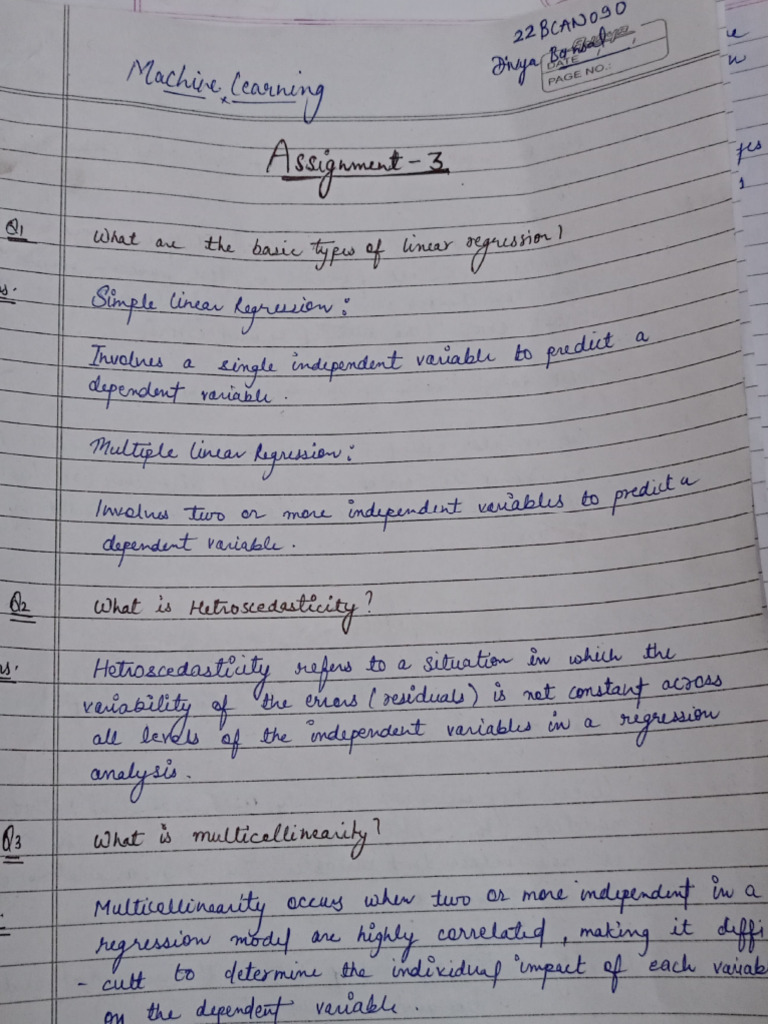 22BCAN090
Divya Bansal
DATE
PAGE NO.:
Machine Learning
Assignment - 3
Q1 What are the basic types of linear regression?
s. Simple linear Regression:
Involves a single independent variable to predict a
dependent variable.
Multiple linear Regression:
Involves two or more independent variables to predict a
dependent variable.
Q2 What is Hetroscedasticity?
ns. Hetroscedasticity refers to a situation in which the
variability of the errors (residuals) is not constant across
all levels of the independent variables in a regression
analysis.
Q3 What is multicollinearity?
Multicollinearity occurs when two or more independent in a
regression model are highly correlated, making it diffi
- cult to determine the individual impact of each variab
on the dependent variable.